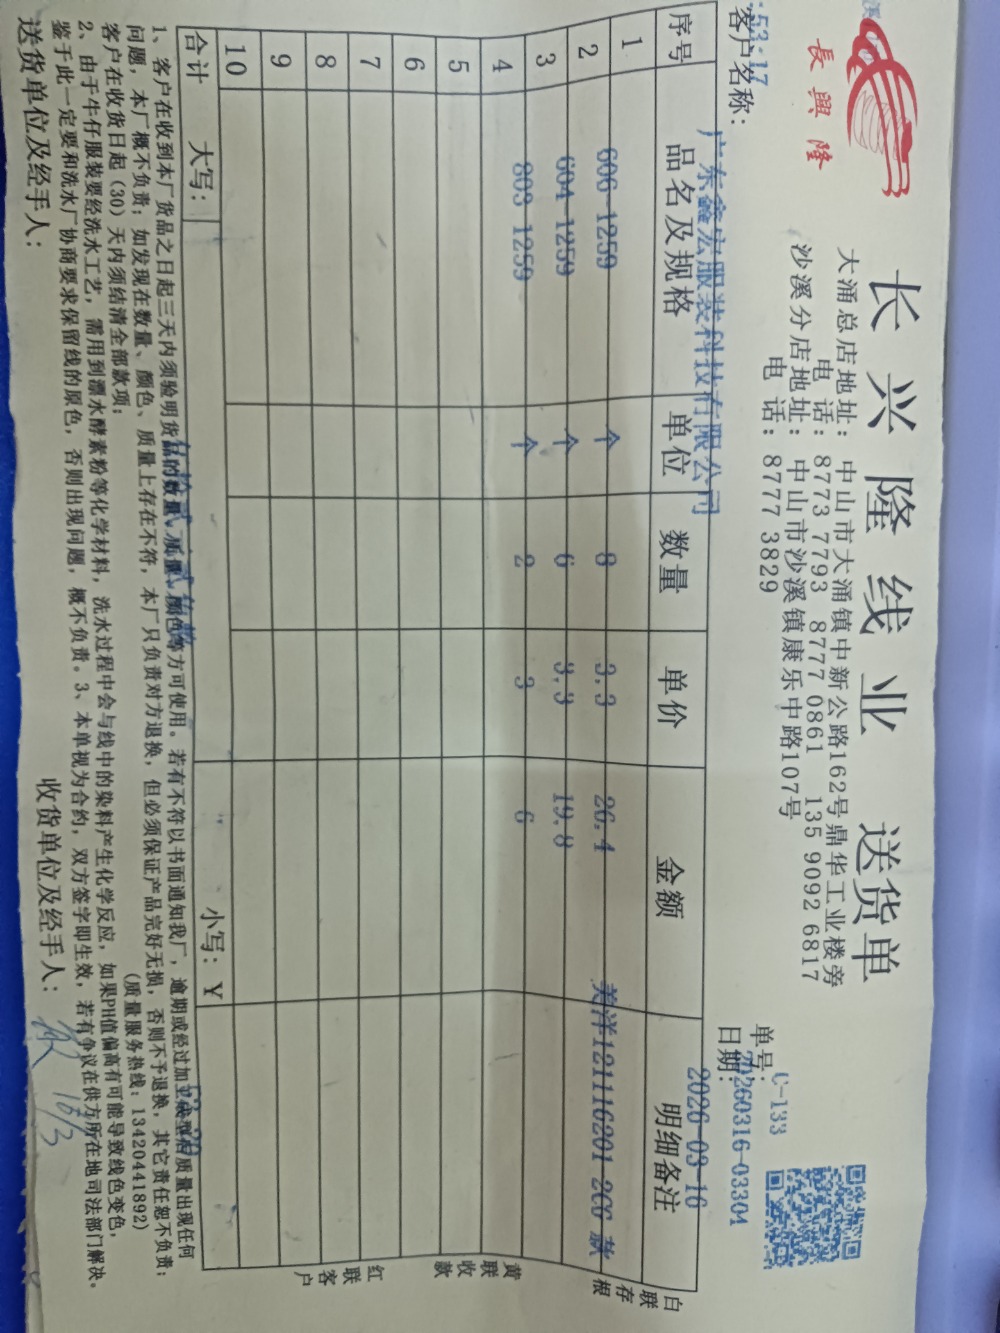 長興隆
长兴隆线业 送货单
大涌总店地址：中山市大涌镇中新公路162号鼎华工业楼旁
电 话：8773 7793 8777 0861 135 9092 6817
沙溪分店地址：中山市沙溪镇康乐中路107号
电 话：8777 3829
:53:17
C-133
单号：20260316-03304
客户名称：广东鑫宏服装科技有限公司
日期：2026-03-16
序号 品名及规格 单位 数量 单价 金额 明细备注
1 606-1259 个 8 3.3 26.4 美洋121116201-2CC 款
2 604-1259 个 6 3.3 19.8
3 803-1259 个 2 3 6
4
5
6
7
8
9
10
合计 大写： 小写：￥
白联存根
黄联收款
红联客户
1、客户在收到本厂货品之日起三天内须验明货品的数量，质量，颜色等方可使用。若有不符以书面通知我厂，逾期或经过加工成型后质量出现任何
问题，本厂概不负责；如发现在数量、颜色、质量上存在不符，本厂只负责对方退换，但必须保证产品完好无损，否则不予退换，其它责任恕不负责；
客户在收货日起（30）天内须结清全部款项； (质量服务热线：13420441892)
2、由于牛仔服装要经洗水工艺，需用到漂水酵素粉等化学材料，洗水过程中会与线中的染料产生化学反应，如果PH值偏高有可能导致线色变色，
鉴于此一定要和洗水厂协商要求保留线的原色，否则出现问题，概不负责。3、本单视为合约，双方签字即生效，若有争议在供方所在地司法部门解决。
送货单位及经手人： 收货单位及经手人： 16/3